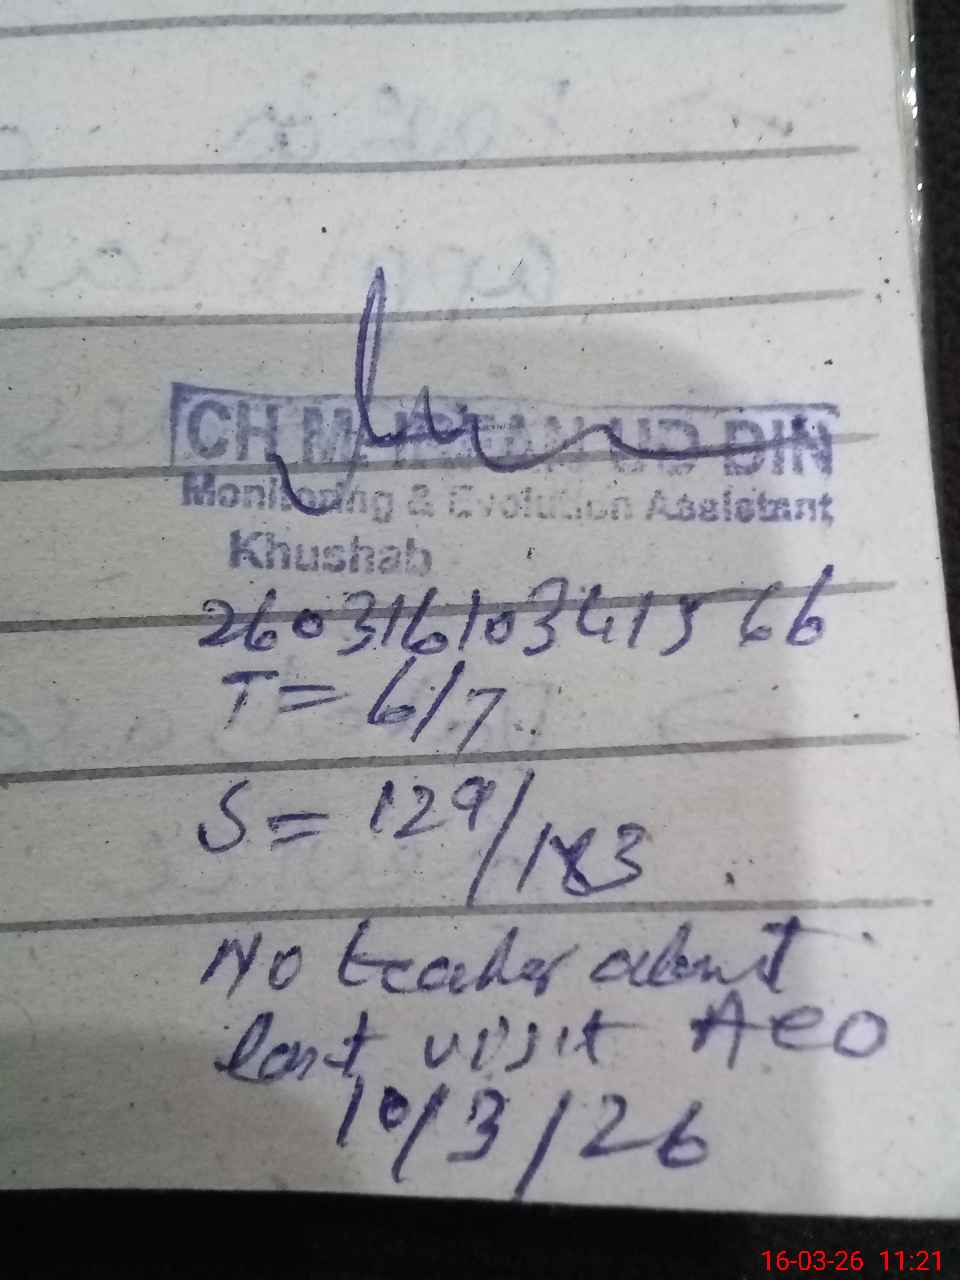 CH M. IRFAN UD DIN
Monitoring & Evolution Assistant
Khushab
260316103415 66
T = 6/7
S = 129/183
No teacher absent
last visit AEO
10/3/26
16-03-26 11:21